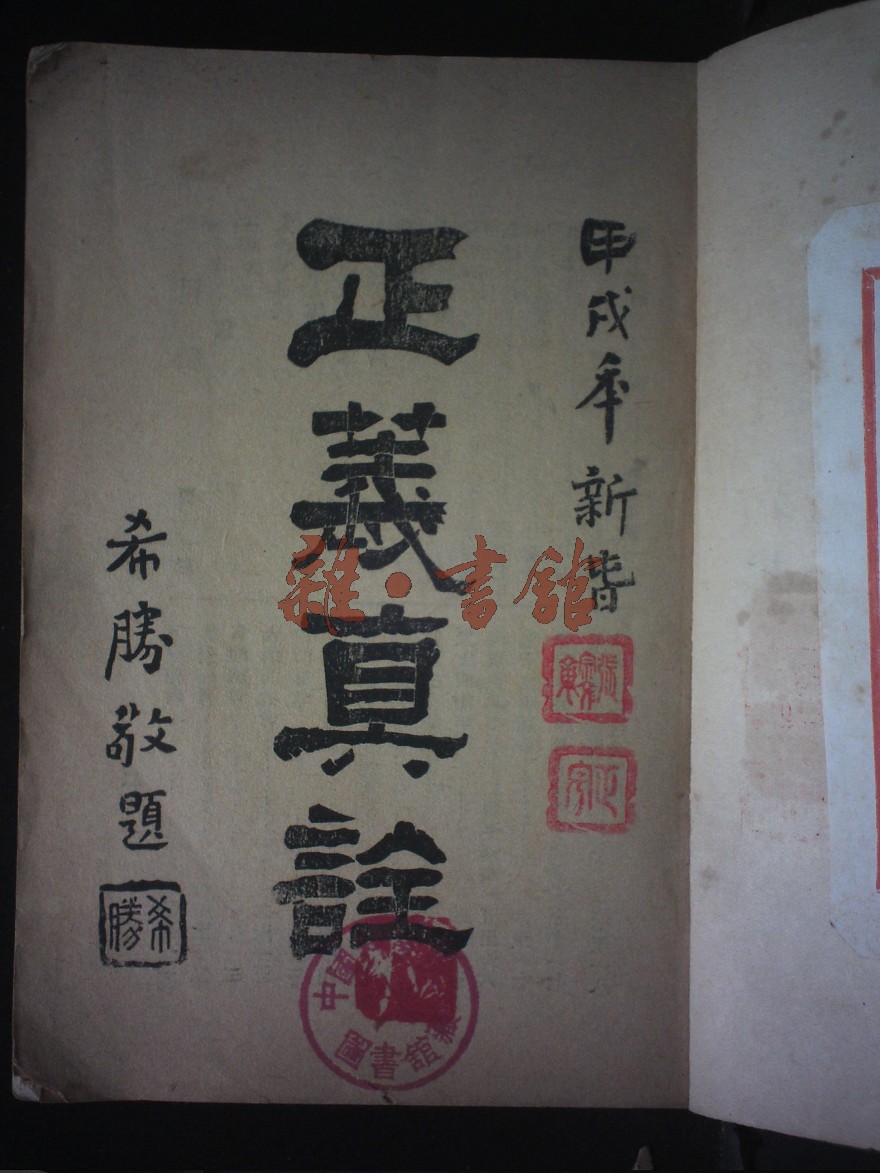 甲戌年新
正義真詮
希勝敬題
希勝
雜·書館
中國
圖書館藏